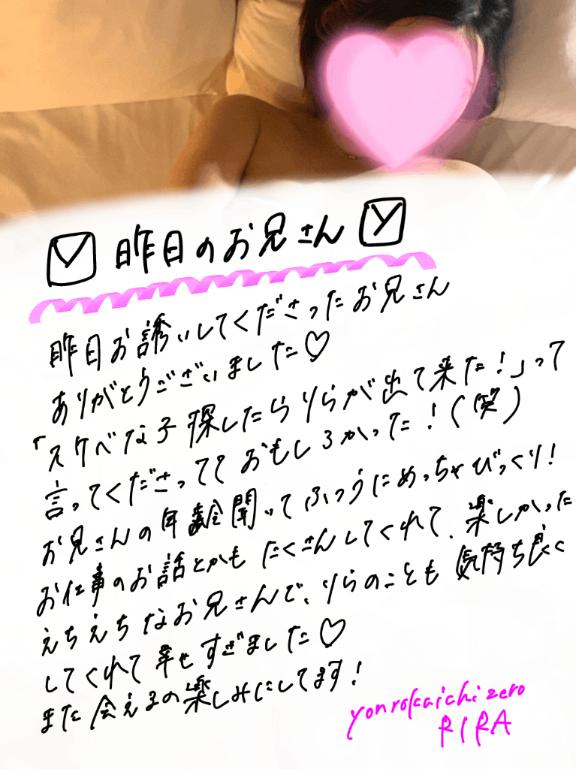 昨日のお兄さん
昨日お誘いしてくださったお兄さん
ありがとうございました♡
「スケベな子探したらりらが出て来た！」って
言ってくださってておもしろかった！(笑)
お兄さんの年齢聞いてふつうにめっちゃびっくり！
お仕事のお話とかもたくさんしてくれて、楽しかった
えちえちなお兄さんで、りらのことも気持ち良く
してくれて幸せすぎました♡
また会えるの楽しみにしてます！
yonrokaichi zero
RIRA